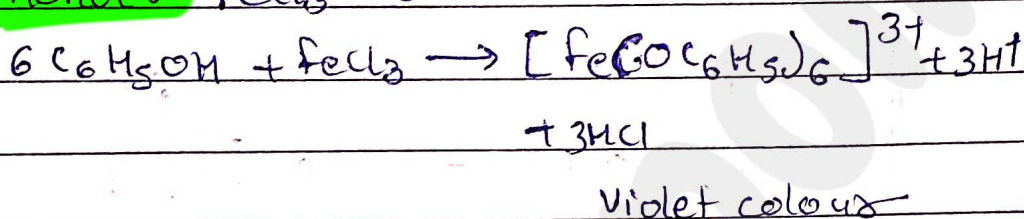 6 C6H5OH + FeCl3 → [Fe(OC6H5)6]3+ + 3H+
+ 3HCl
Violet colour